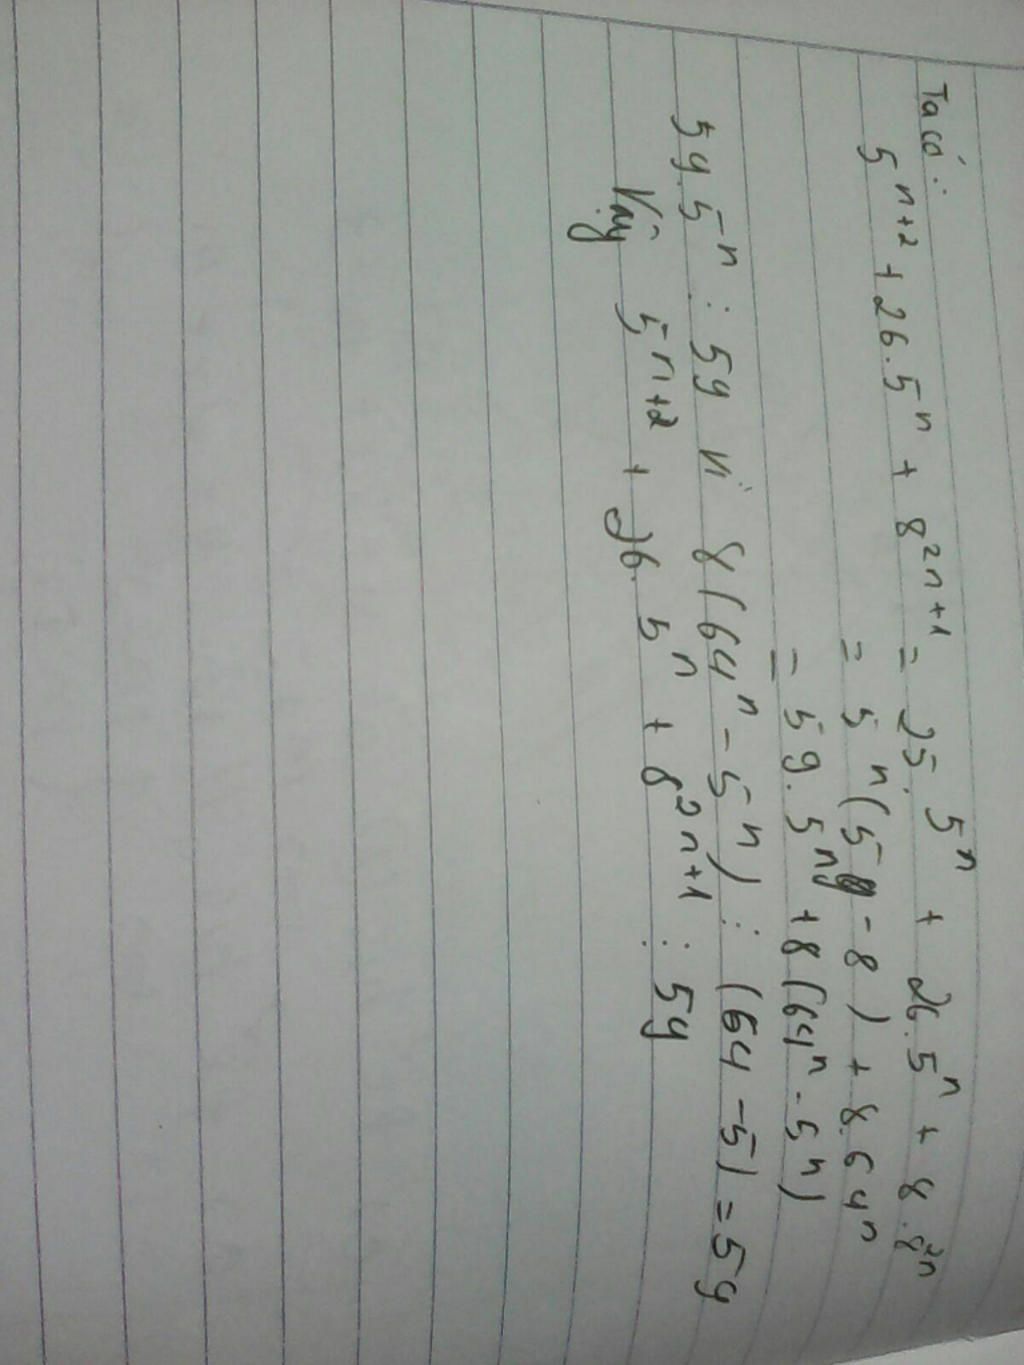 Ta có:
5ⁿ⁺² + 26.5ⁿ + 8²ⁿ⁺¹ = 25.5ⁿ + 26.5ⁿ + 8.8²ⁿ
= 5ⁿ(59 - 8) + 8.64ⁿ
= 59.5ⁿ + 8(64ⁿ - 5ⁿ)
59.5ⁿ ⋮ 59 vì 8(64ⁿ - 5ⁿ) ⋮ (64 - 5) = 59
Vậy 5ⁿ⁺² + 26.5ⁿ + 8²ⁿ⁺¹ ⋮ 59